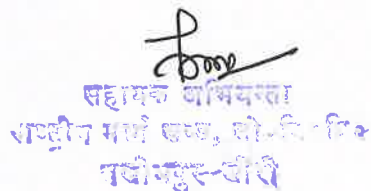 सहायक अभियन्ता
राष्ट्रीय मार्ग खण्ड, लो०नि०वि०
लखीमपुर-खीरी